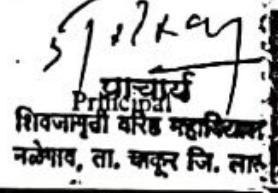 प्राचार्य
Principal
शिवजागृती वरिष्ठ महाविद्यालय,
नळेगाव, ता. चाकूर जि.